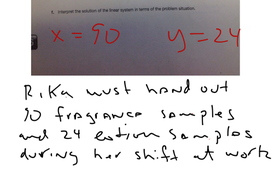 1. Interpret the solution of the linear system in terms of the problem situation.
x = 90 y = 24
Rika must hand out
90 fragrance samples
and 24 lotion samples
during her shift at work